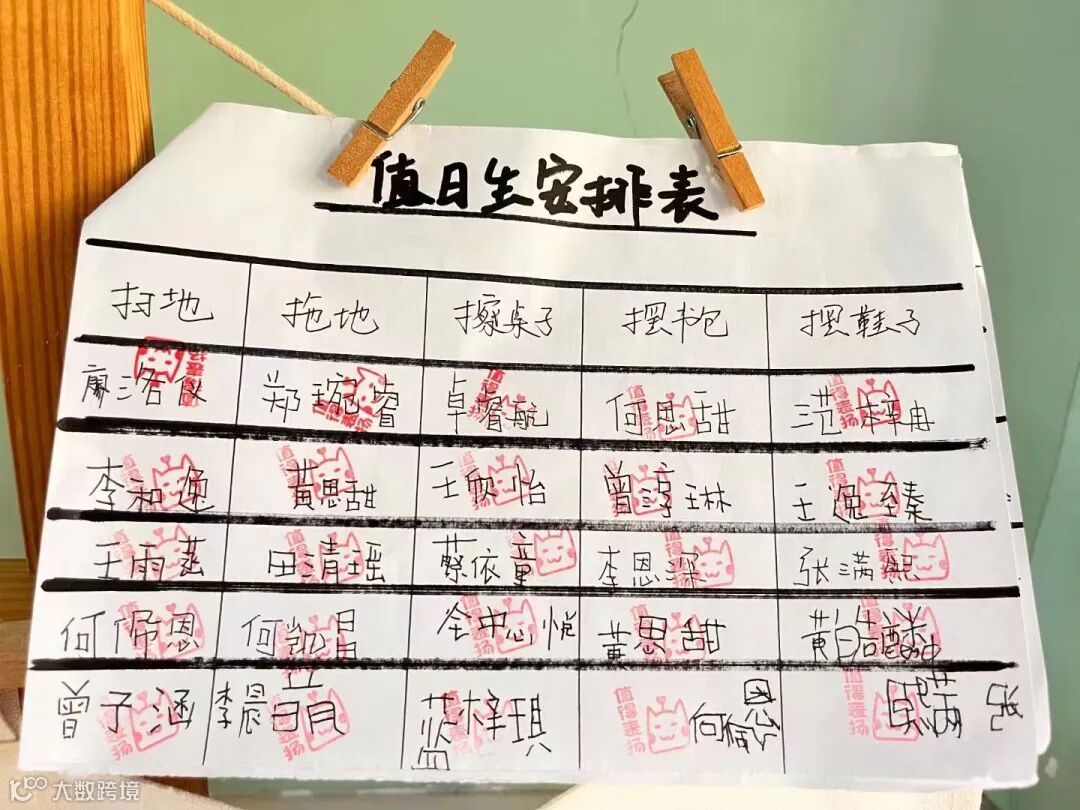 值日生安排表
扫地 拖地 擦桌子 摆书包 摆鞋子
廖洛 郑琬睿 卓睿航 何思甜 范梓冉
李和逸 黄思甜 王欣怡 曾淳琳 王逸臻
王雨菡 田清瑶 蔡依童 李恩深 张满熙
何佩恩 何凯 全忠悦 黄思甜 黄皓麟
曾子涵 李晨 蓝梓琪 何
值得表扬
大数跨境